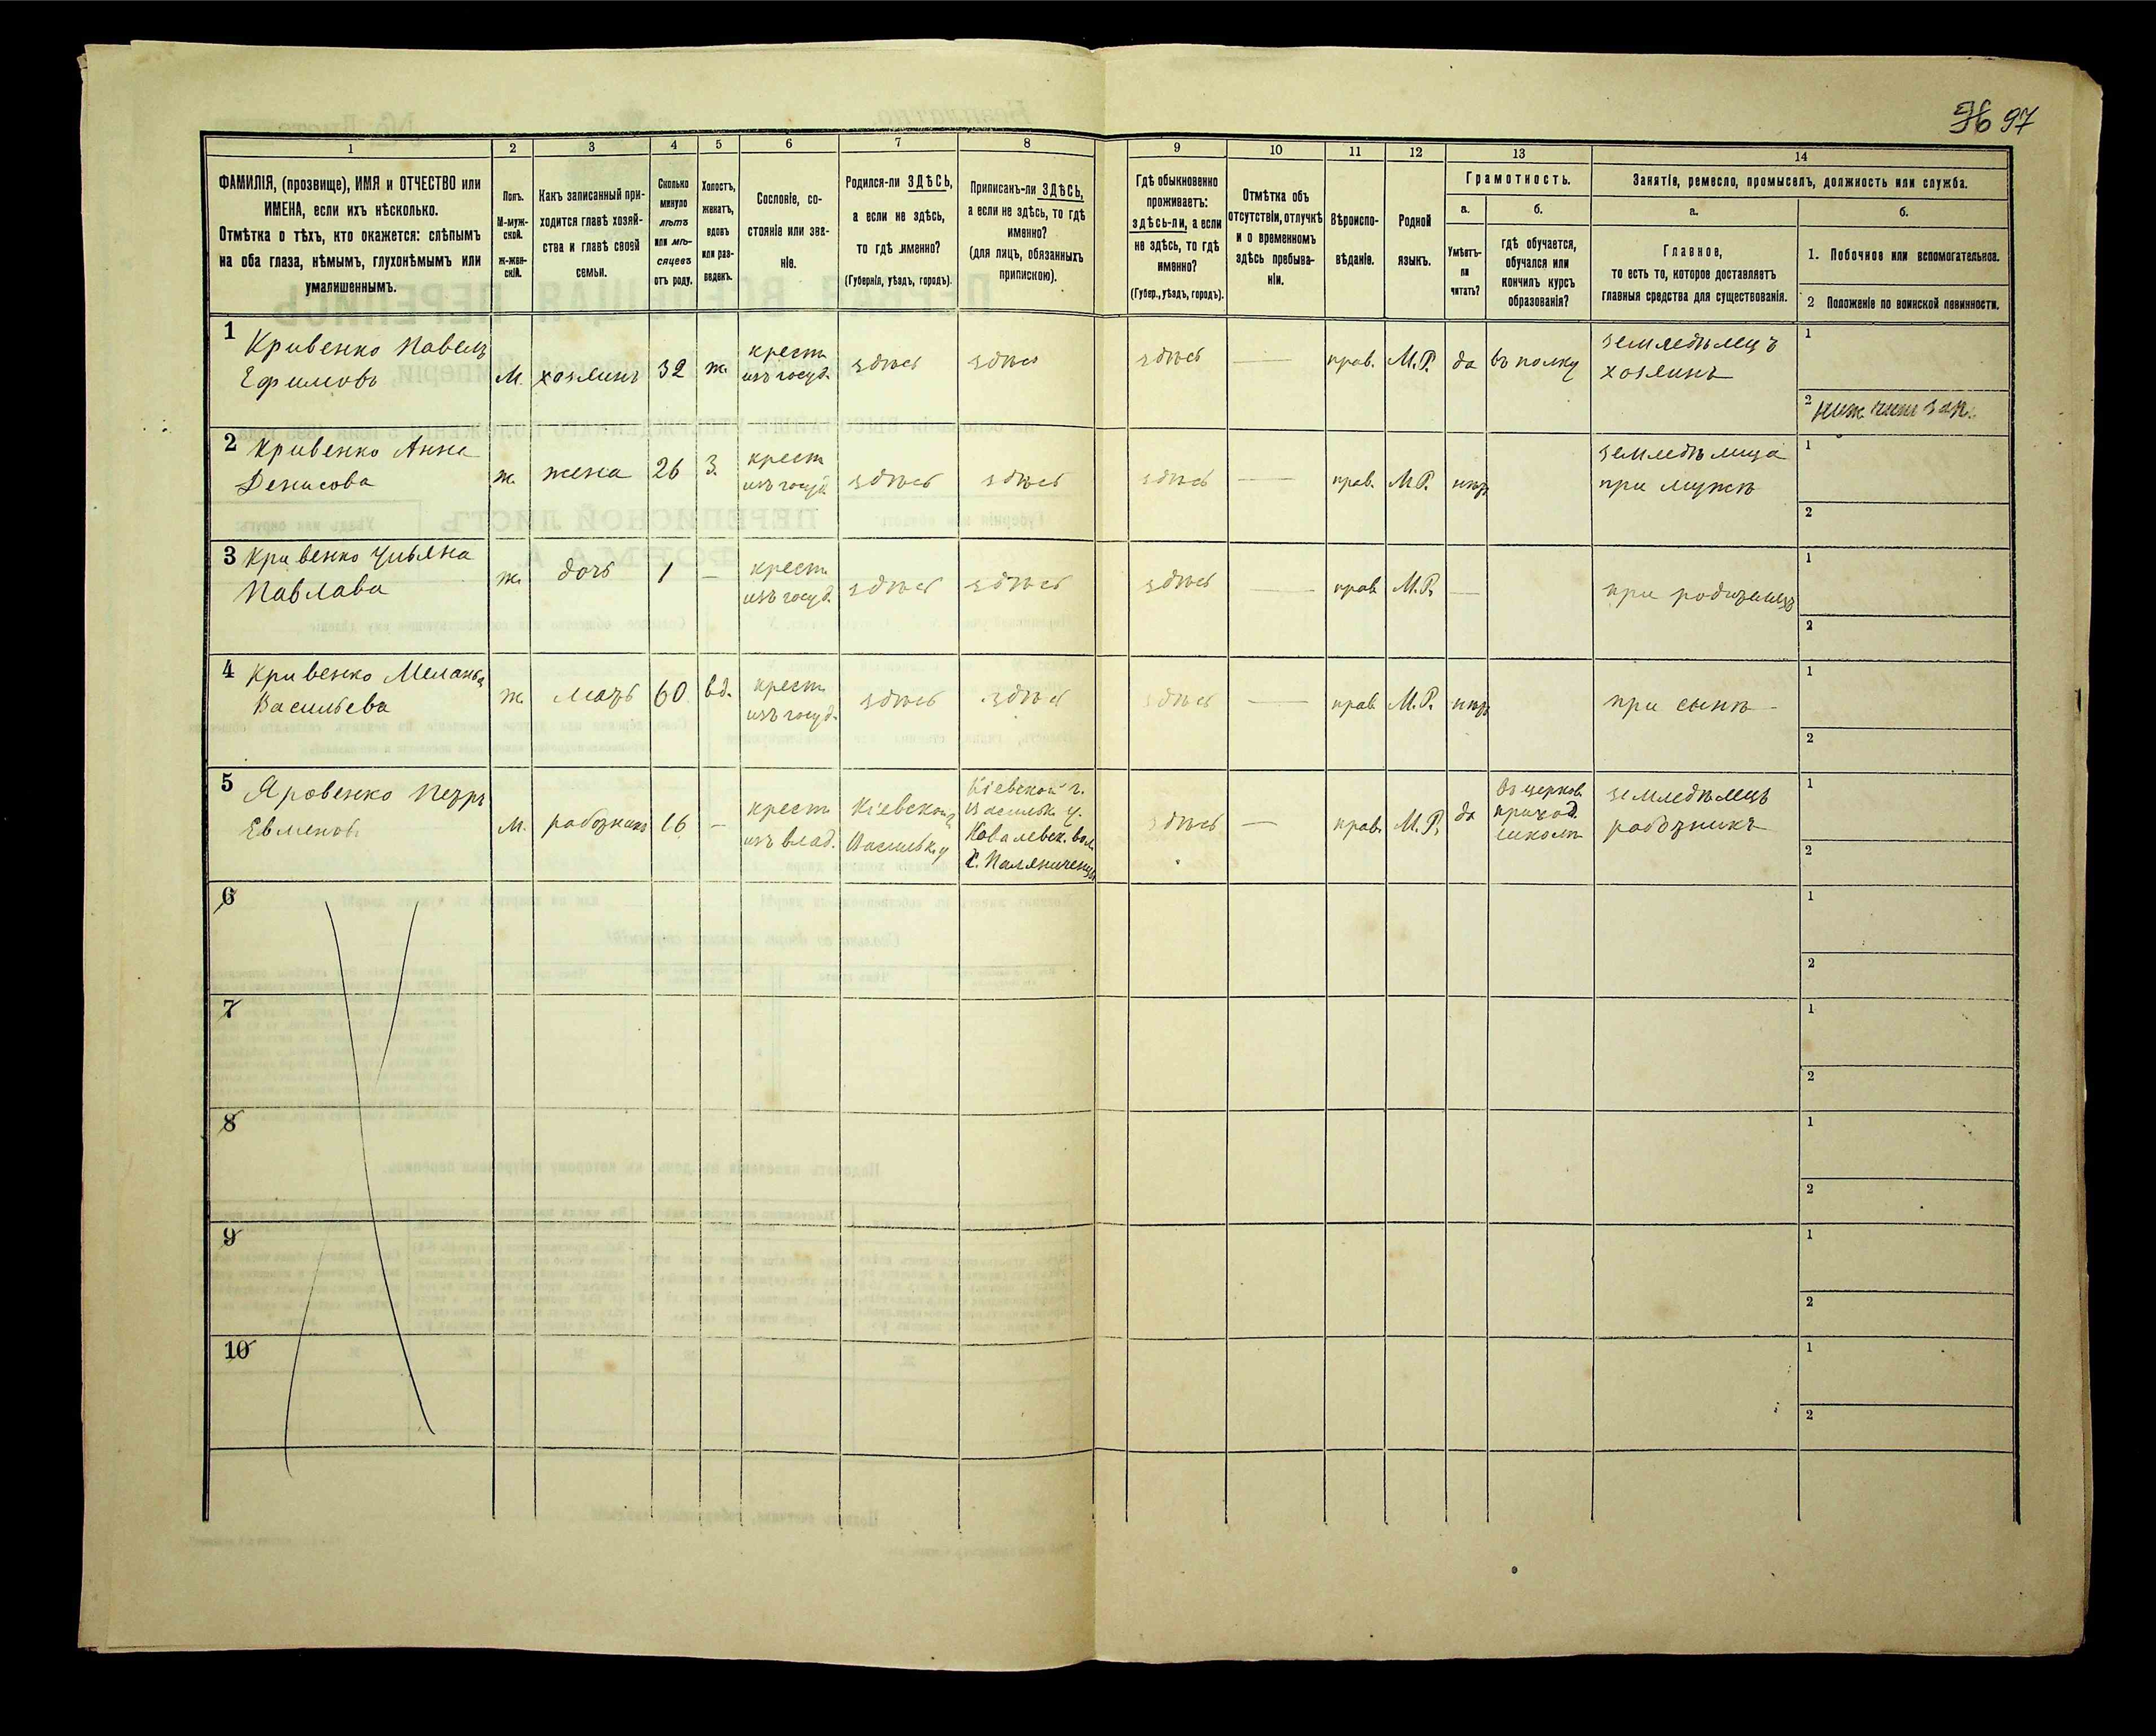 96 97
1 2 3 4 5 6 7 8 9 10 11 12 13 14
ФАМИЛІЯ, (прозвище), ИМЯ и ОТЧЕСТВО или
ИМЕНА, если ихъ нѣсколько.
Отмѣтка о тѣхъ, кто окажется: слѣпымъ
на оба глаза, нѣмымъ, глухонѣмымъ или
умалишеннымъ.
Полъ.
М-муж-
ской.
ж-жен-
скій.
Какъ записанный при-
ходится главѣ хозяй-
ства и главѣ своей
семьи.
Сколько
минуло
лѣтъ
или мѣ-
сяцевъ
отъ роду.
Холостъ,
женатъ,
вдовъ
или раз-
веденъ.
Сословіе, со-
стояніе или зва-
ніе.
Родился-ли ЗДѢСЬ,
а если не здѣсь,
то гдѣ именно?
(Губернія, уѣздъ, городъ).
Приписанъ-ли ЗДѢСЬ,
а если не здѣсь, то гдѣ
именно?
(для лицъ, обязанныхъ
припискою).
Гдѣ обыкновенно
проживаетъ:
здѣсь-ли, а если
не здѣсь, то гдѣ
именно?
(Губер., уѣздъ, городъ).
Отмѣтка объ
отсутствіи, отлучкѣ
и о временномъ
здѣсь пребыва-
ніи.
Вѣроиспо-
вѣданіе.
Родной
языкъ.
Грамотность.
а.
Умѣетъ-
ли
читать?
б.
гдѣ обучается,
обучался или
кончилъ курсъ
образованія?
Занятіе, ремесло, промыселъ, должность или служба.
а.
Главное,
то есть то, которое доставляетъ
главныя средства для существованія.
б.
1. Побочное или вспомогательное.
2 Положеніе по воинской повинности.
1 Кривенко Павелъ
Ефимовъ
М. хозяинъ 32 ж.
крест.
изъ госуд.
здѣсь здѣсь здѣсь — прав. М.Р. да въ полку
земледѣлецъ
хозяинъ
1
2 ниж. чин зап.
2 Кривенко Анна
Денисова
ж. жена 26 з.
крест.
изъ госуд.
здѣсь здѣсь здѣсь — прав. М.Р. нѣтъ
земледѣлица
при мужѣ
1
2
3 Кривенко Ульяна
Павлава
ж. дочь 1 —
крест.
изъ госуд.
здѣсь здѣсь здѣсь — прав. М.Р. —
при родителяхъ
1
2
4 Кривенко Меланья
Васильева
ж. мать 60 вд.
крест.
изъ госуд.
здѣсь здѣсь здѣсь — прав. М.Р. нѣтъ
при сынѣ
1
2
5 Яровенко Петръ
Евменовъ
М. работникъ 16 —
крест.
изъ влад.
Кіевской г.
Васильк. у
Кіевской г.
Васильк. у.
Ковалевск. вол.
с. Паляниченцы
здѣсь — прав. М.Р. да
въ церков.
приход.
школѣ
земледѣлецъ
работникъ
1
2
6
1
2
7
1
2
8
1
2
9
1
2
10
1
2